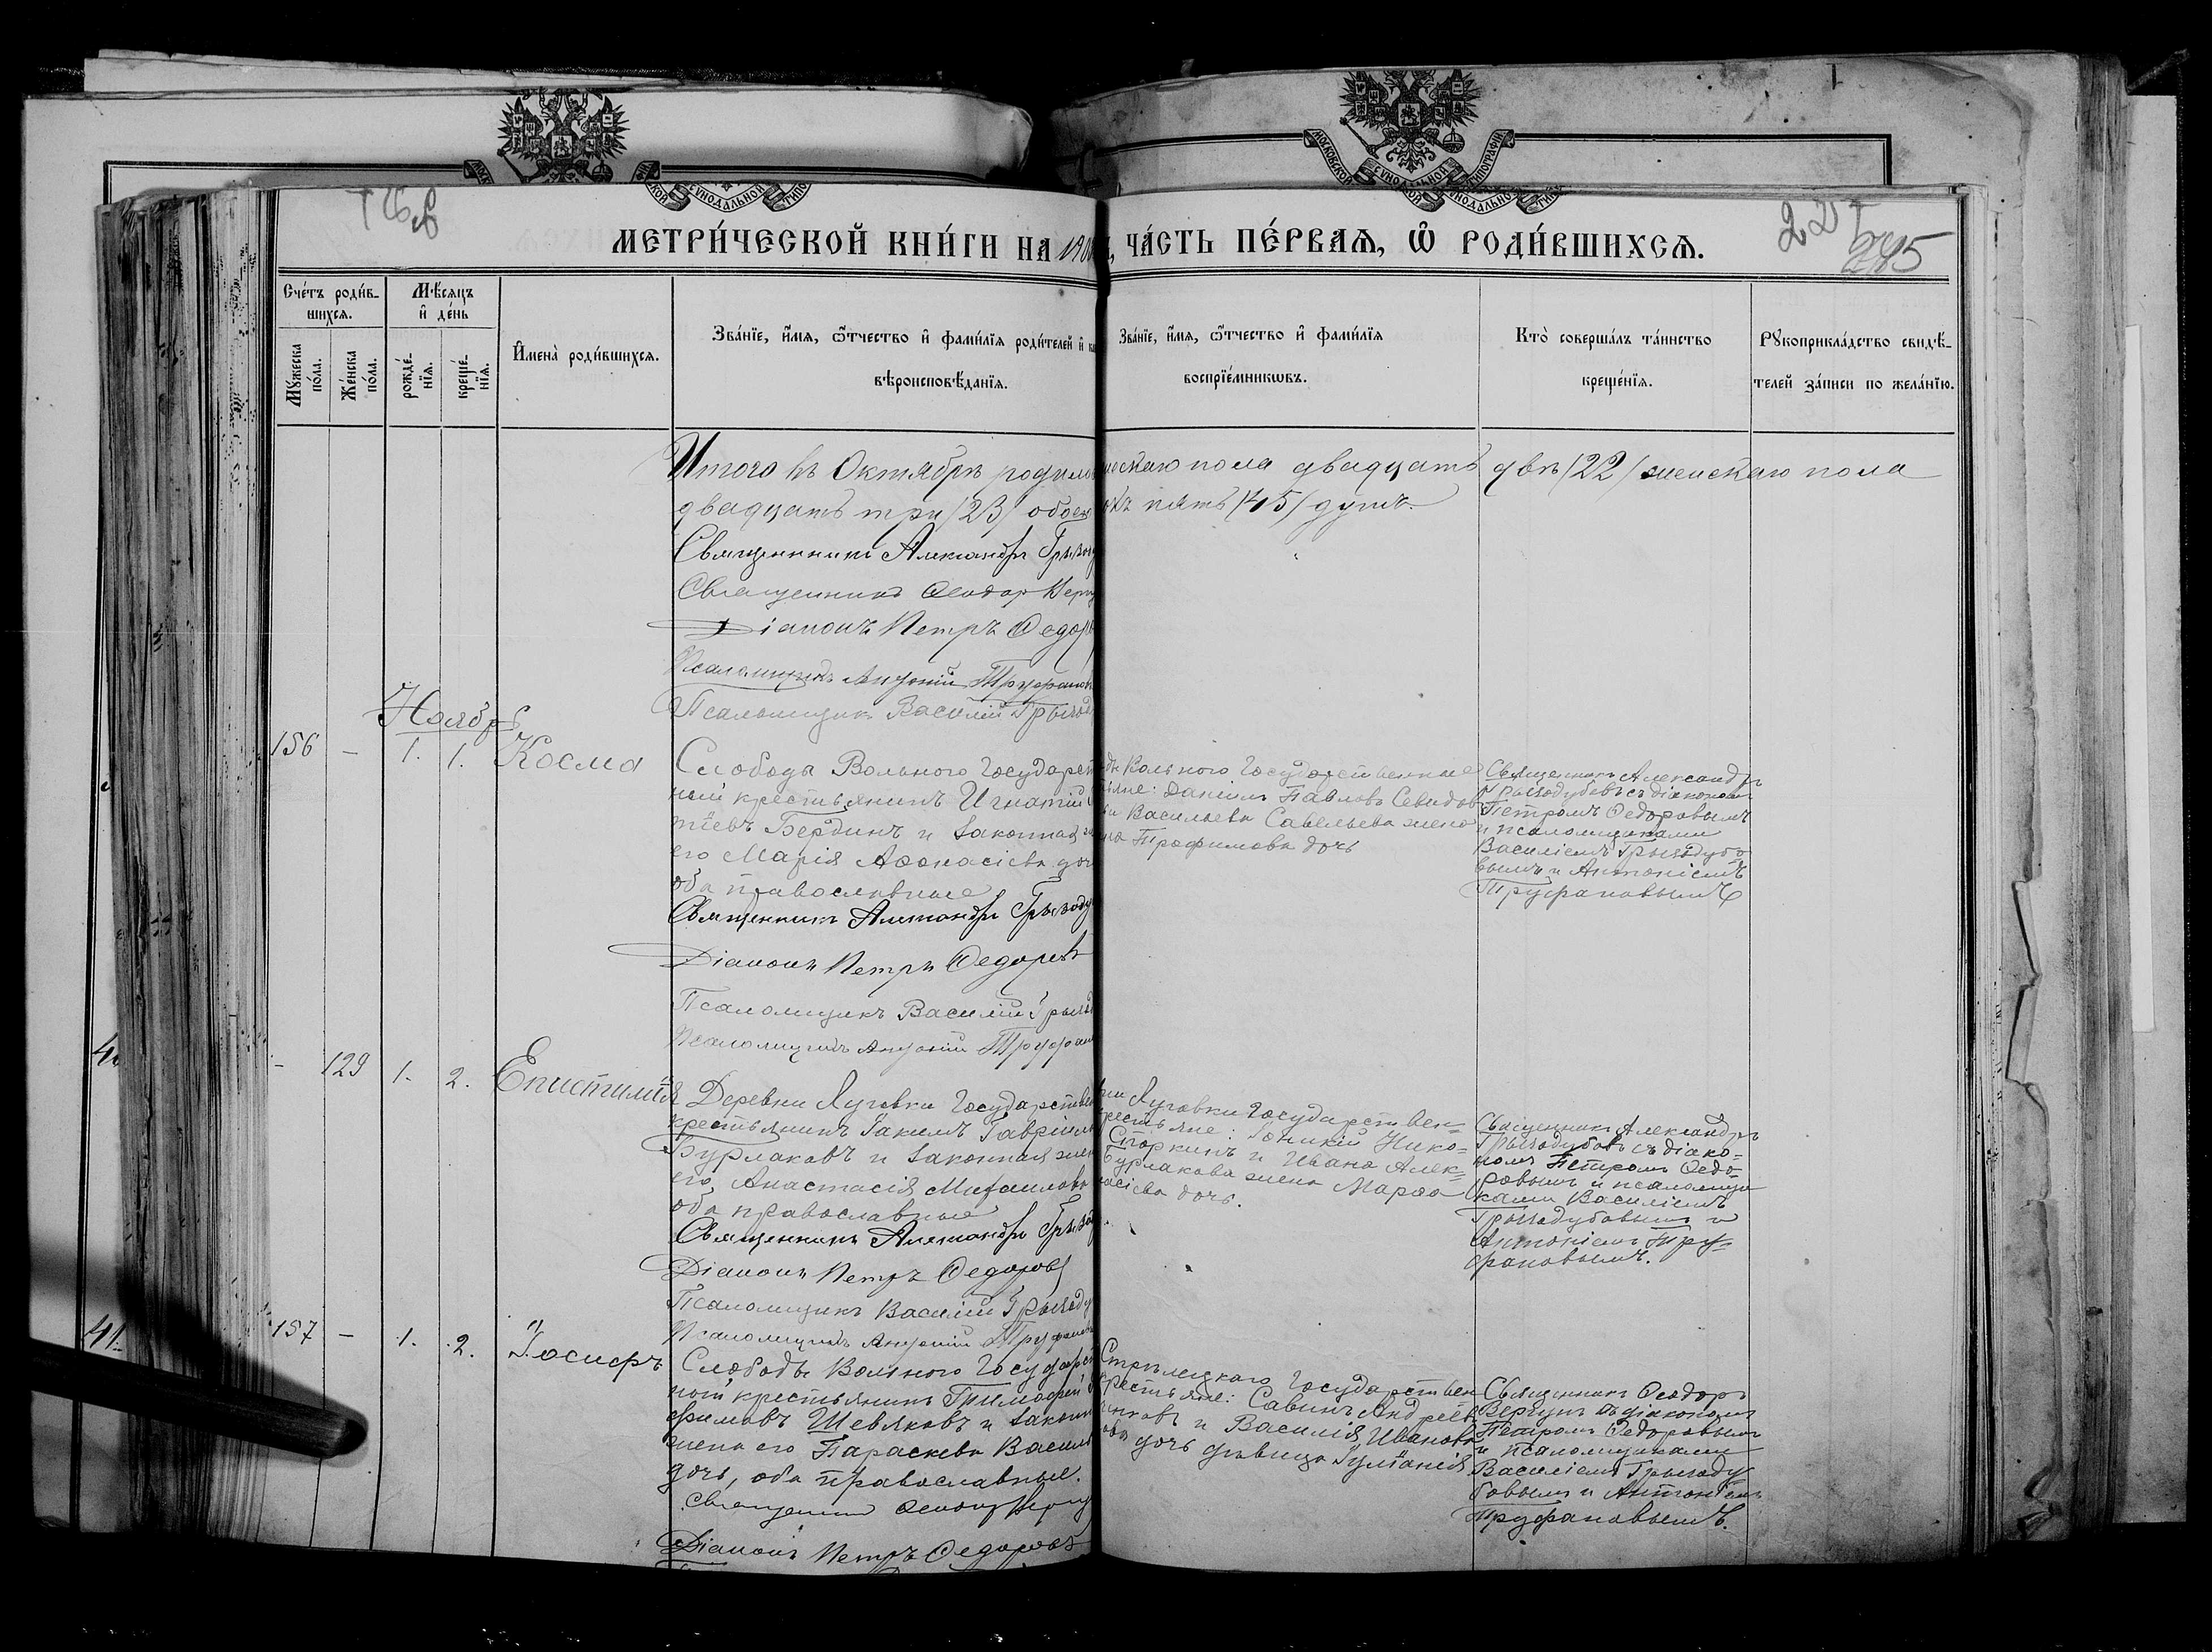 МОСКОВСКОЙ СѴНОДАЛЬНОЙ ТИПОГРАФІИ
МЕТРИ́ЧЕСКОЙ КНИ́ГИ НА 190
, ЧА́СТЬ ПЕ́РВАЯ, Ѿ РОДИ́ВШИХСЯ.
227
Сче́тъ роди́в-
шихся.
Му́жеска по́ла.
Же́нска по́ла.
Мѣ́сяцъ и҆ де́нь
рожде́-нїя.
креще́-нїя.
И҆мена̀ роди́вшихся.
Зва́нїе, и҆́мя, ѻ҆́тчество и҆ фами́лїя роди́телей и҆
вѣроисповѣ́данїя.
Зва́нїе, и҆́мя, ѻ҆́тчество и҆ фами́лїя
воспрїе́мникѡвъ.
Кто̀ соверша́лъ та́инство
креще́нїя.
Рꙋкоприкла́дство свидѣ́-
телей за́писи по жела́нїю.
Итого въ Октябрѣ родило
ескаго пола двадцать двѣ /22/ женскаго пола
двадцать три /23/ обоего
пять /45/ душъ.
Священникъ Александръ Грызоду
Священникъ Ѳеодор Вергу
Діаконъ Петръ Ѳедор
Псаломщикъ Антоній Труфанов
Псаломщик Василій Грызод
Ноябрь
156 – 1. 1. Косма
Слободы Вольного Государст
ный крестьянинъ Игнатій
тіевъ Бердинъ и законная же
его Марія Аѳанасіева доч
оба православные
Священникъ Александръ Грызоду
Діаконъ Петръ Ѳедоровъ
Псаломщикъ Василій Грызод
Псаломщикъ Антоній Труфан
ды Вольного Государственные
яне: Данiилъ Павловъ
и Васильева Савельева жена
на Трофимова дочь
Священникъ Александръ
Грызодубовъ съ діакономъ
Петромъ Ѳедоровымъ
и псаломщиками
Василіемъ Грызодубо
вымъ и Антоніемъ
Труфановымъ
– 129 1. 2. Епистимія
Деревни Луговки Государствен
крестьянинъ Іакимъ Гавріило
Бурлаковъ и законная жен
его Анастасія Михаилова
оба православные
Священникъ Александръ Грызод
Діаконъ Петръ Ѳедоровъ
Псаломщикъ Василій Грызоду
Псаломщикъ Антоній Труфанов
ни Луговки Государствен-
крестьяне: Іоникій Нико-
Споркинъ и Ивана Алек-
Бурлакова жена Марѳа
асіева дочь.
Священникъ Александръ
Грызодубовъ съ діако-
номъ Петромъ Ѳедо-
ровымъ и псаломщи
ками Василіемъ
Грызодубовымъ и
Антоніемъ Тру-
фановымъ.
41.
157 – 1. 2. Іосифъ
Слободы Вольного Государст
ной крестьянинъ Тимофей
фимовъ Шевяковъ и законн
жена его Параскева Василь
дочь, оба православные.
Священник Ѳеодор Вергу
Діаконъ Петръ Ѳедоровъ
Стрѣлецкаго Государствен
крестьяне: Савинъ Андреев
и Василія Иванова
ова дочь дѣвица Іуліанія
Священникъ Ѳеодоръ
Вергунъ съ діакономъ
Петромъ Ѳедоровымъ
и псаломщиками
Василіемъ Грызоду
бовымъ и Антоніемъ
Труфановымъ.